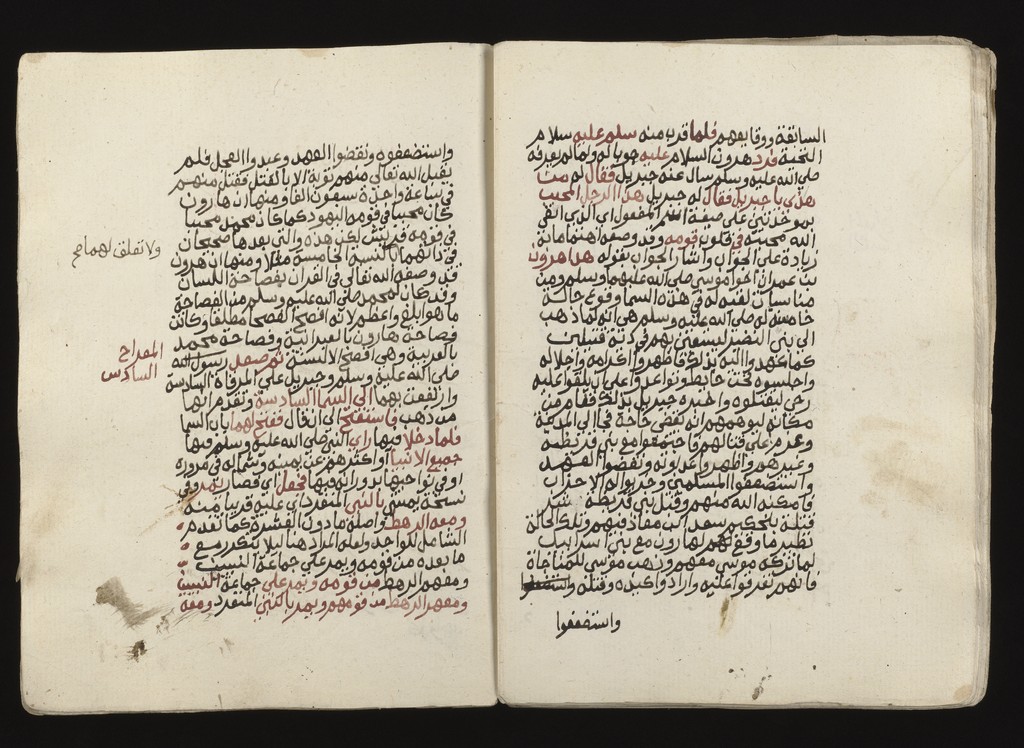 السابقة ووقايعهم فلما قرب منه سلم عليه سلام
التحية فرد هرون السلام عليه جوبا له ولما لم يعرفه
صلى الله عليه وسلم سال عنه جبريل فقال له من
هذا يا جبريل فقال له جبريل هذا الرجل المحبب
بموحدتين على صيغة اسم المفعول اي الذي القي
الله محبته في قلوب قومه وقد وصفه اهتماما به
زيادة على الجواب واشار الجواب بقوله هذا هرون
بن عمران اخو موسي صلى الله عليهما وسلم ومن
مناسبات لقيه له في هذه السما وقوع حالة
خامسة له صلى الله عليه وسلم هي انه لما ذهب
الى بني النضير ليستعين بهم في دية قتيلين
كما عهد واليه بذلك فاظهروا اكرامه واجلاله
واجلسوه تحت حايط وتواعدوا على ان يلقوا عليه
رحى ليقتلوه واخبره جبريل بذلك فقام من
مكانه ليوهمهم انه يقضي حاجة في الى المدينة
وعزم على قتالهم فاجتمعوا مع بني قريظة
وغيرهم واظهروا عداوته ونقضوا العهد
واستضعفوا المسلمين وحزبوا له الاحزاب
فامكنه الله منهم وقتل بني قريظة شر
قتلة بتحكيم سعد ابن معاذ فيهم وتلك الحالة
نظير ما وقع لهم لهارون مع بني اسراييل
لما تركه موسي معهم وذهب موسي للمناجاة
فانهم تفرقوا عليه وارادوا كيده وقتله
واستضعفوا
واستضعفوه ونقضوا العهد وعبدوا العجل فلم
يقبل الله تعالى منهم توبة الا بالقتل فقتل منهم
في ساعة واحدة سبعون الفا ومنها ان هارون
كان محببا في قومه اليهود كما كان محمد محببا
في قومه قريش لكن هذه والتي بعدها صحيحان
في ذاتهما بالنسبة الخامسة مطلقا ومنها ان هرون
ولا تعلق لهما صح
قد وصفه الله تعالى في القران بفصاحة اللسان
وقد كان لمحمد صلى الله عليه وسلم من الفصاحة
ما هو ابلغ واعظم لانه افصح الفصحا مطلقا وكانت
فصاحة هارون بالعبرانية وفصاحة محمد
بالعربية وهي افصح الالسنة ثم صعد رسول الله
المعراج
السادس
صلى الله عليه وسلم وجبريل على المرقاة السادسة
وارتفعت بهما الى السما السادسة وتقدم انها
من ذهب فاستفتح الى ان قال ففتح لهما باب السما
فلما دخلا فيها راي النبي صلى الله عليه وسلم فيها
جميع الانبيا او اكثرهم عن يمينه وشماله في مروره
او في نواحيها بدورانه فيها فجعل اي فصار يمر وفي
نسخة يمشي بالنبي المنفرد اي عليه قريبا منه
ومعه الرهط واصله ما دون العشرة كما تقدم
الشامل للواحد ولعله المراد هنا ليلا يتكرر مع
ما بعده من قومه ويمر على جماعة النبيين
ومعهم الرهط من قومه ويمر على جماعة النبيين
ومعهم الرهط من قومهم ويمر بالنبي المنفرد ومعه